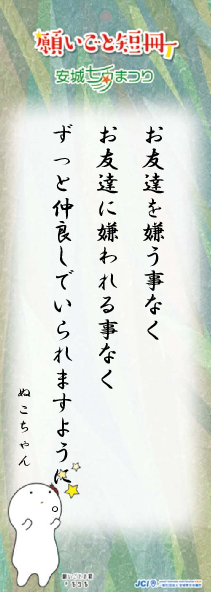 願いごと短冊
安城七夕まつり
お友達を嫌う事なく
お友達に嫌われる事なく
ずっと仲良しでいられますように
ぬこちゃん
JCI